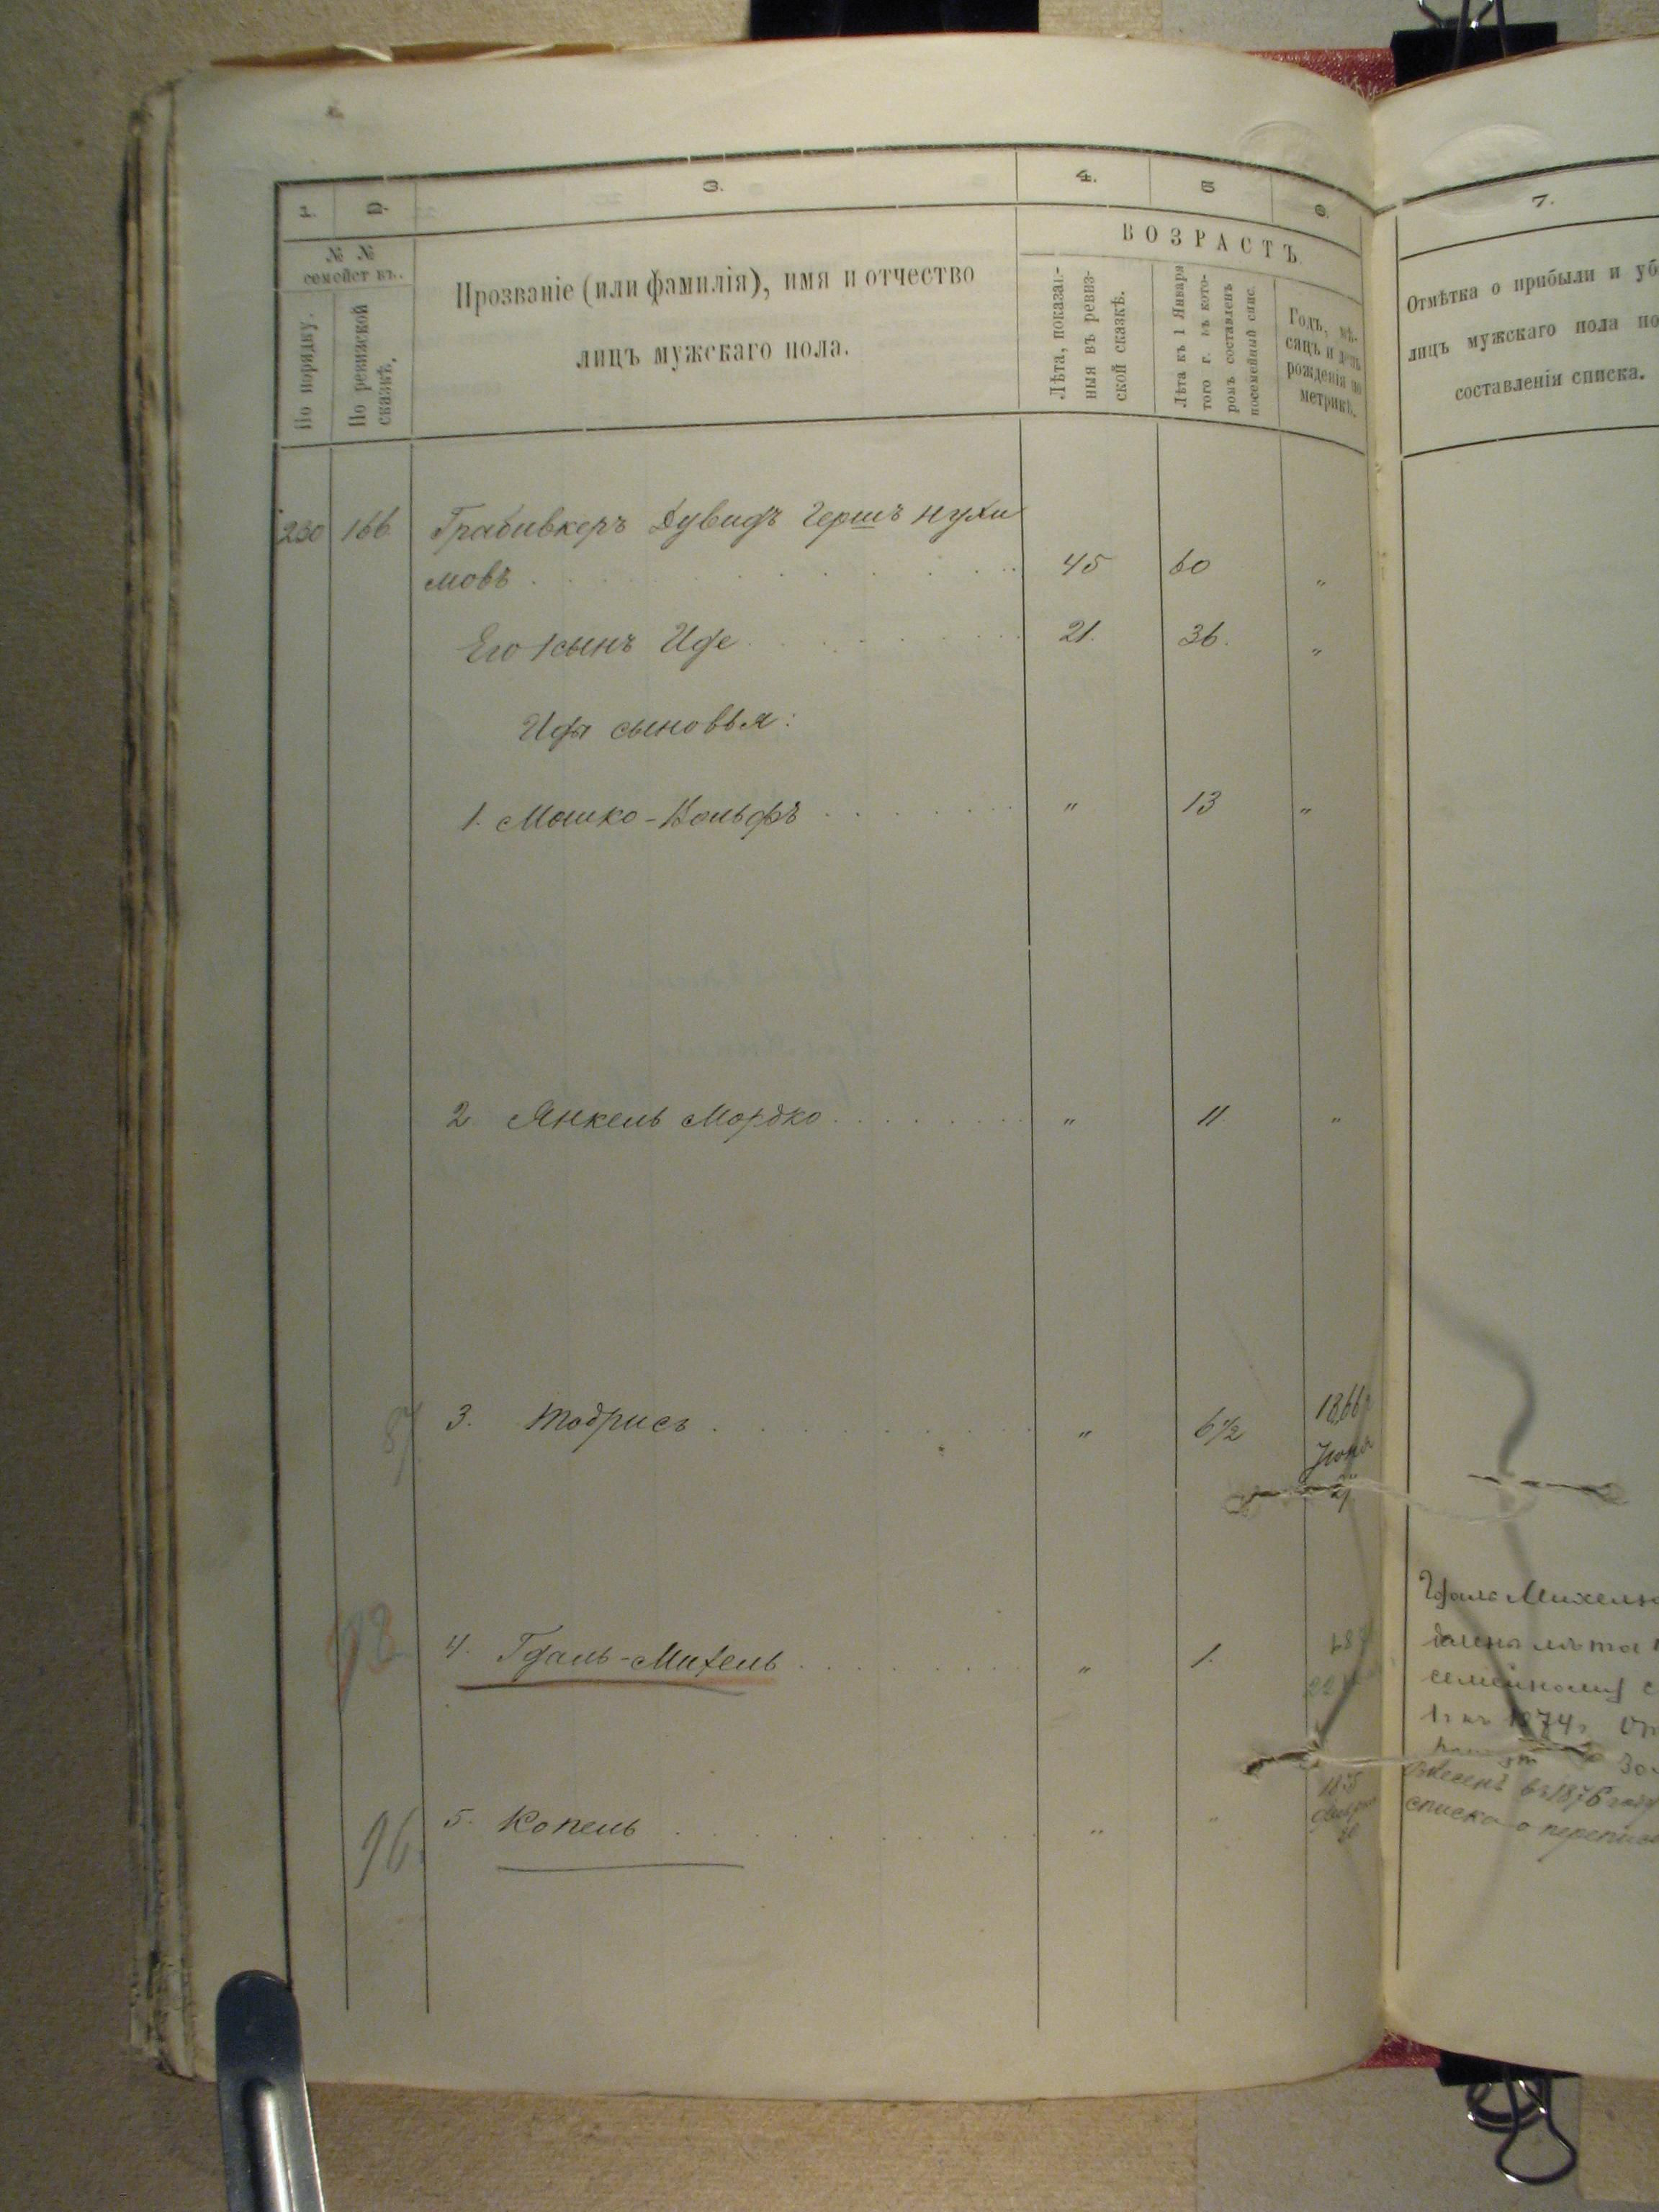 1.
2.
3.
4.
5
6.
7.
№ №
семейст въ.
По порядку.
По ревизской
сказкѣ.
Прозваніе (или фамилія), имя и отчество
лицъ мужскаго пола.
ВОЗРАСТЪ.
Лѣта, показан-
ныя въ ревиз-
ской сказкѣ.
Лѣта къ 1 Января
того г. въ кото-
ромъ составленъ
посемейный спис.
Годъ, мѣ-
сяцъ и день
рожденія по
метрикѣ.
Отмѣтка о прибыли и уб
лицъ мужскаго пола по
составленія списка.
230 166 Грабивкеръ Дувидъ Гершъ Нухи
мовъ 45 60 "
Его сынъ Иде 21. 36. "
Иды сыновья:
1. Мошко-Вольфъ " 13 "
2 Янкель Мордко " 11 "
87 3. Тодрисъ " 6½ 1866
98 4. Гдаль-Михель " 1.
96 5. Копель " "
Гдаль Михелю
1874
внесенъ въ 1876 году
списка о перепис